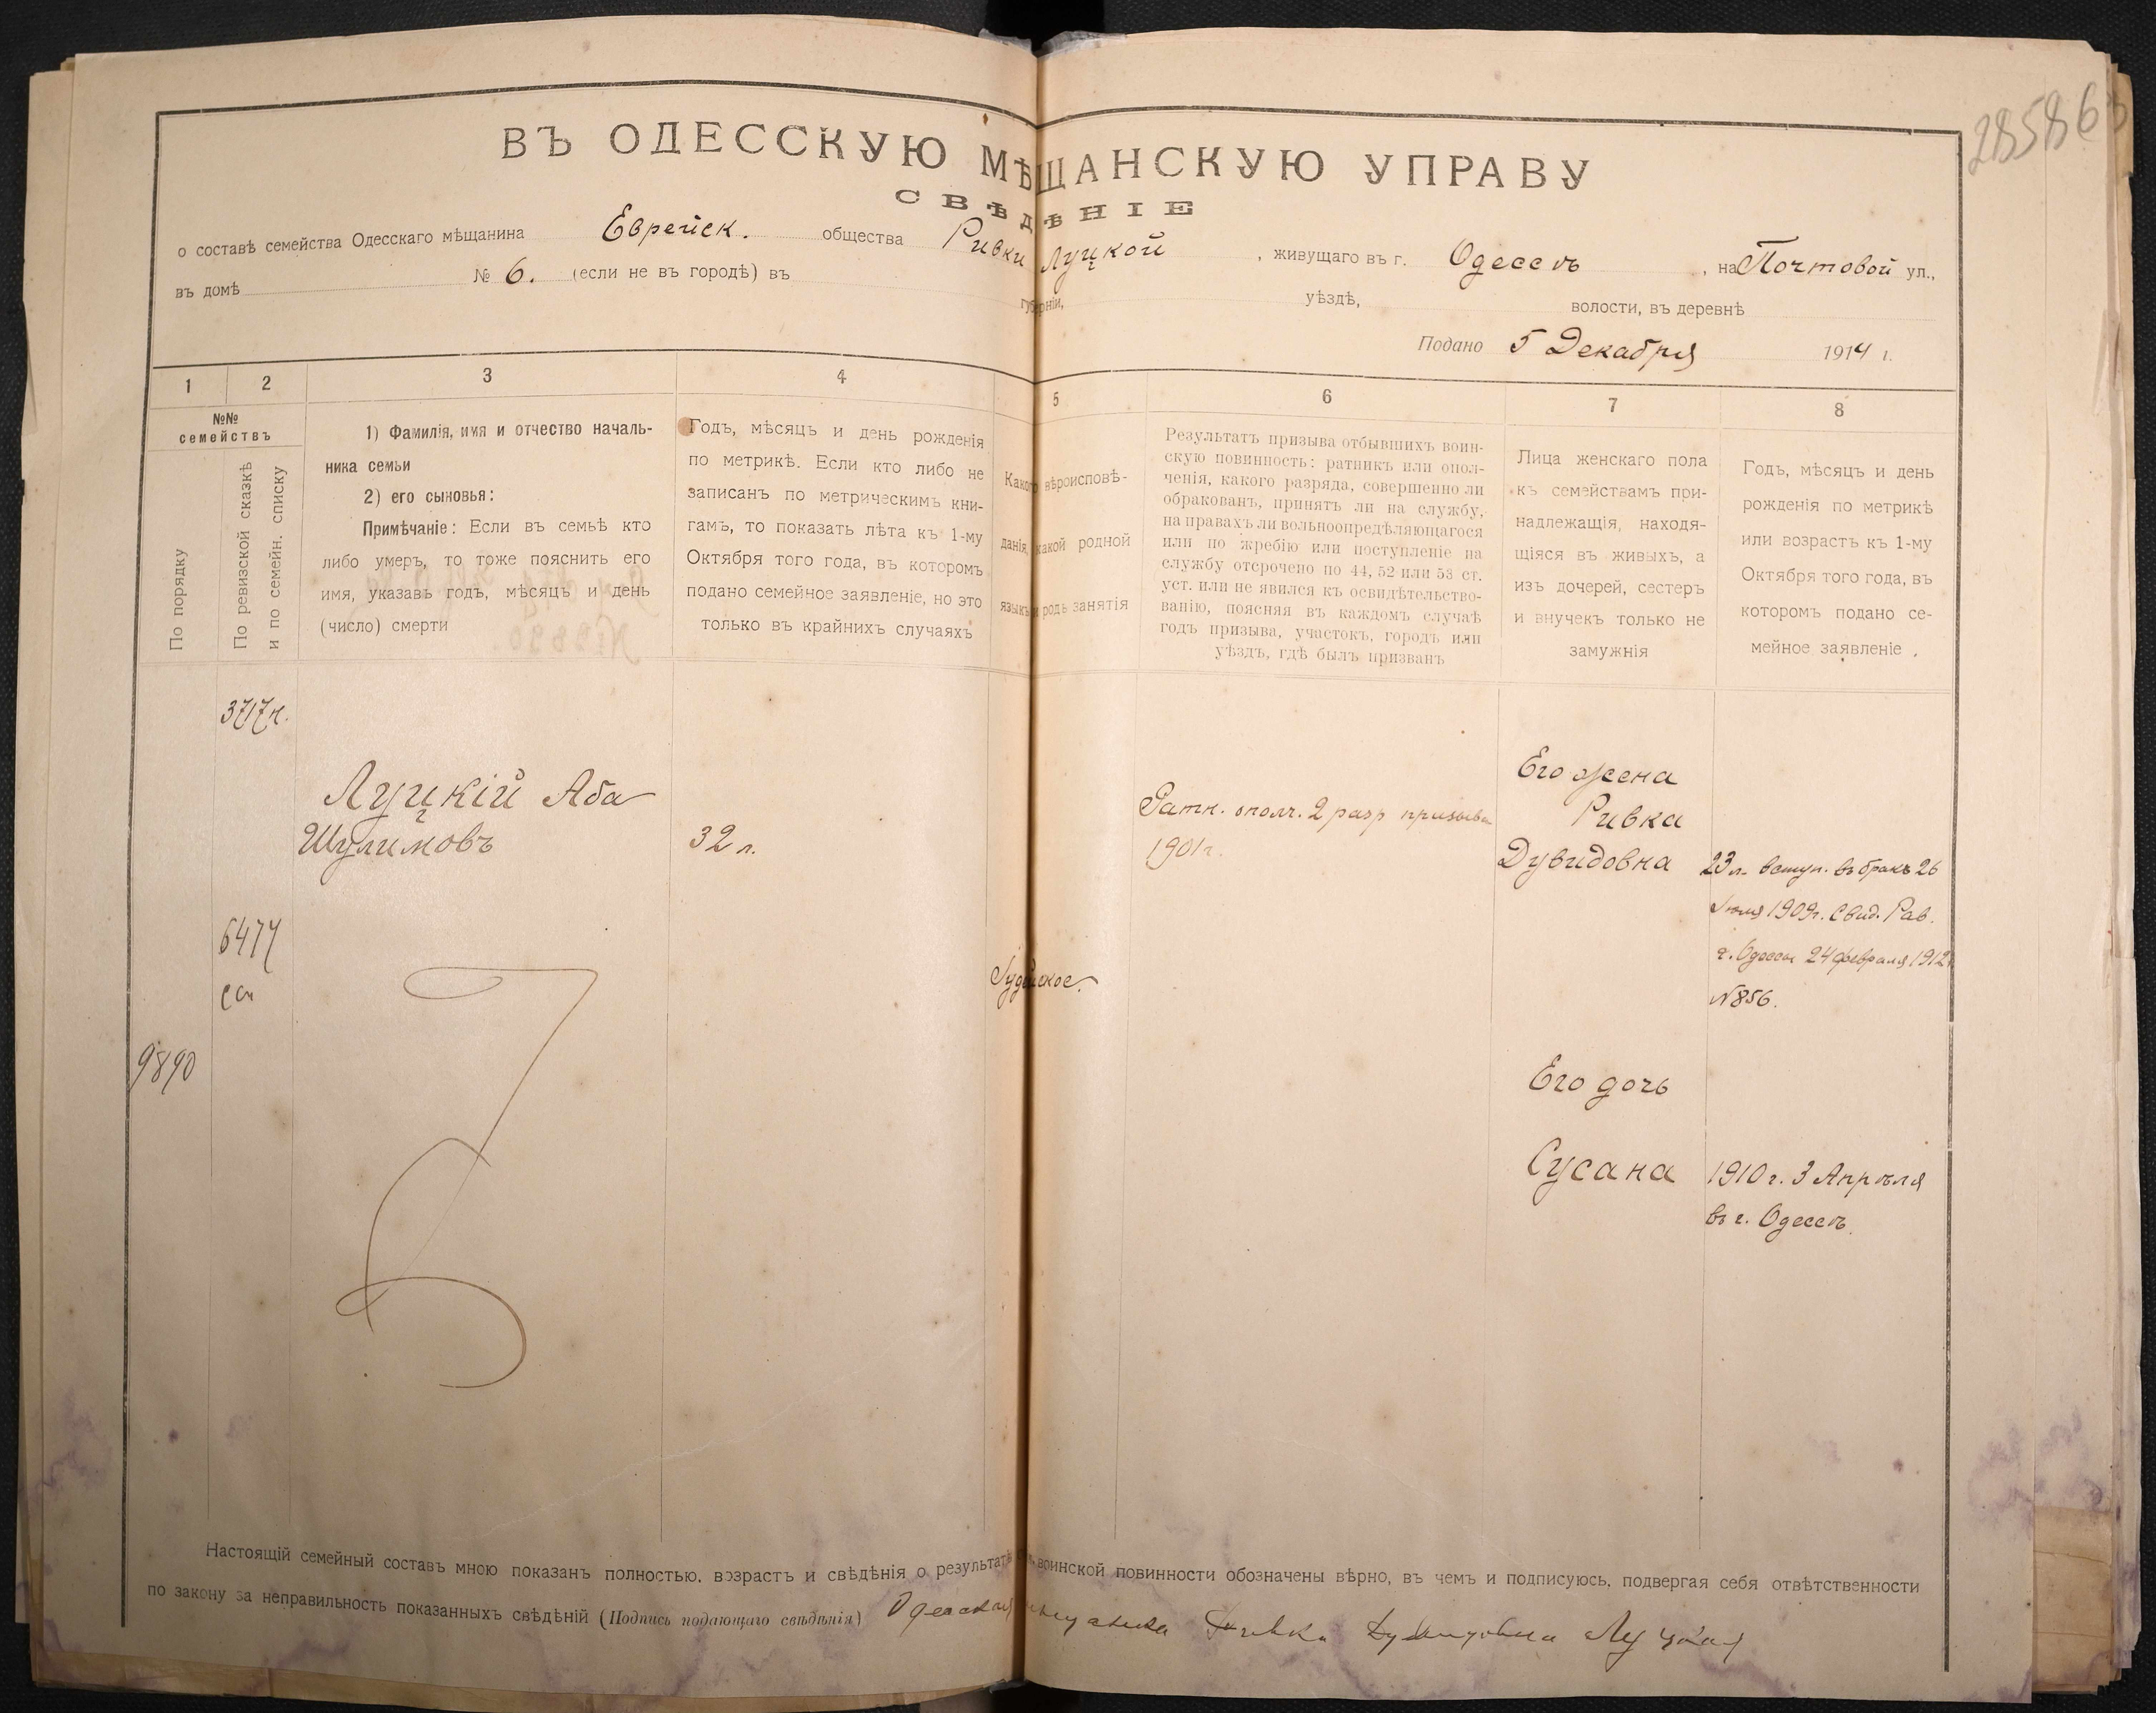 28586
ВЪ ОДЕССКУЮ МѢЩАНСКУЮ УПРАВУ
СВѢДѢНІЕ
о составѣ семейства Одесскаго мѣщанина Еврейск. общества Ривки Луцкой, живущаго въ г. Одессѣ, на Почтовой ул.,
въ домѣ № 6. (если не въ городѣ) въ губерніи, уѣздѣ, волости, въ деревнѣ
Подано 5 Декабря 1914 г.
1 2 3 4 5 6 7 8
№№
семействъ
По порядку
По ревизской сказкѣ
и по семейн. списку
1) Фамилія, имя и отчество началь-
ника семьи
2) его сыновья:
Примѣчаніе: Если въ семьѣ кто
либо умеръ, то тоже пояснить его
имя, указавъ годъ, мѣсяцъ и день
(число) смерти
Годъ, мѣсяцъ и день рожденія
по метрикѣ. Если кто либо не
записанъ по метрическимъ кни-
гамъ, то показать лѣта къ 1-му
Октября того года, въ которомъ
подано семейное заявленіе, но это
только въ крайнихъ случаяхъ
Какого вѣроисповѣ-
данія, какой родной
языкъ и родъ занятія
Результатъ призыва отбывшихъ воин-
скую повинность: ратникъ или опол-
ченія, какого разряда, совершенно ли
обракованъ, принятъ ли на службу,
на правахъ ли вольноопредѣляющагося
или по жребію или поступленіе на
службу отсрочено по 44, 52 или 53 ст.
уст. или не явился къ освидѣтельство-
ванію, поясняя въ каждомъ случаѣ
годъ призыва, участокъ, городъ или
уѣздъ, гдѣ былъ призванъ
Лица женскаго пола
къ семействамъ при-
надлежащія, находя-
щіяся въ живыхъ, а
изъ дочерей, сестеръ
и внучекъ только не
замужнія
Годъ, мѣсяцъ и день
рожденія по метрикѣ
или возрастъ къ 1-му
Октября того года, въ
которомъ подано се-
мейное заявленіе.
3717н.
6474
сс
9890
Луцкій Аба
Шулимовъ
32 л.
Іудейское.
Ратн. ополч. 2 разр призыва
1901 г.
Его жена
Ривка
Дувидовна
23 л. вступ. въ бракъ 26
Іюля 1909г. Свид. Рав.
г. Одессы 24 февраля 1912г
№856.
Его дочь
Сусана
1910 г. 3 Апрѣля
въ г. Одессѣ.
Настоящій семейный составъ мною показанъ полностью, возрастъ и свѣдѣнія о результатѣ воинской повинности обозначены вѣрно, въ чемъ и подписуюсь, подвергая себя отвѣтственности
по закону за неправильность показанныхъ свѣдѣній (Подпись подающаго свѣдѣнія) Одесская мещанка Ривка Дувидовна Луцкая